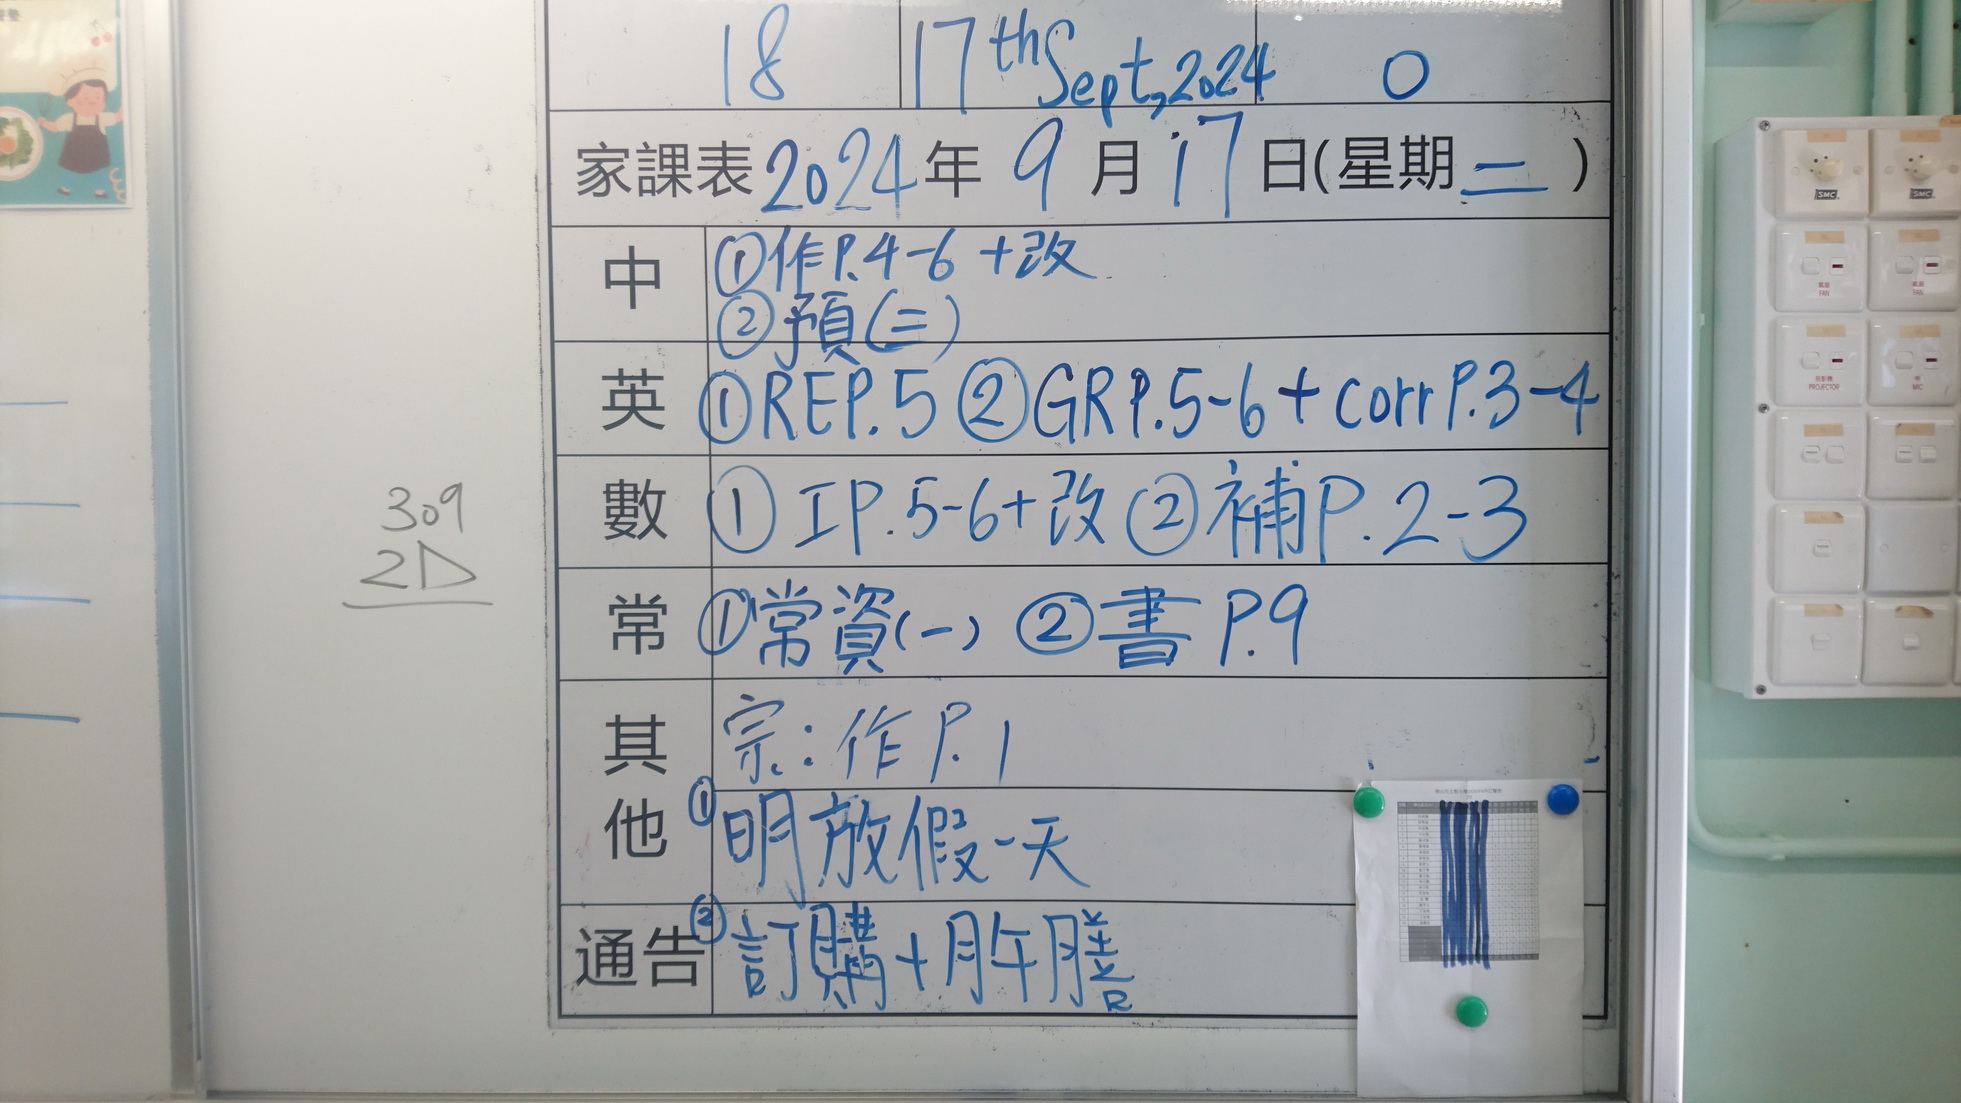 18 17th Sept, 2024 0
家課表 2024年 9月 17日(星期二)
中 ①作P.4-6 +改
②預(二)
英 ①REP.5 ②GRP.5-6+corrP.3-4
數 ① IP.5-6+改 ②補P.2-3
常 ①常資(一) ②書P.9
其他 宗:作P.1
①明放假一天
通告 ②訂購十月午膳
309
2D
SMC
SMC
FAN
FAN
PROJECTOR
MIC